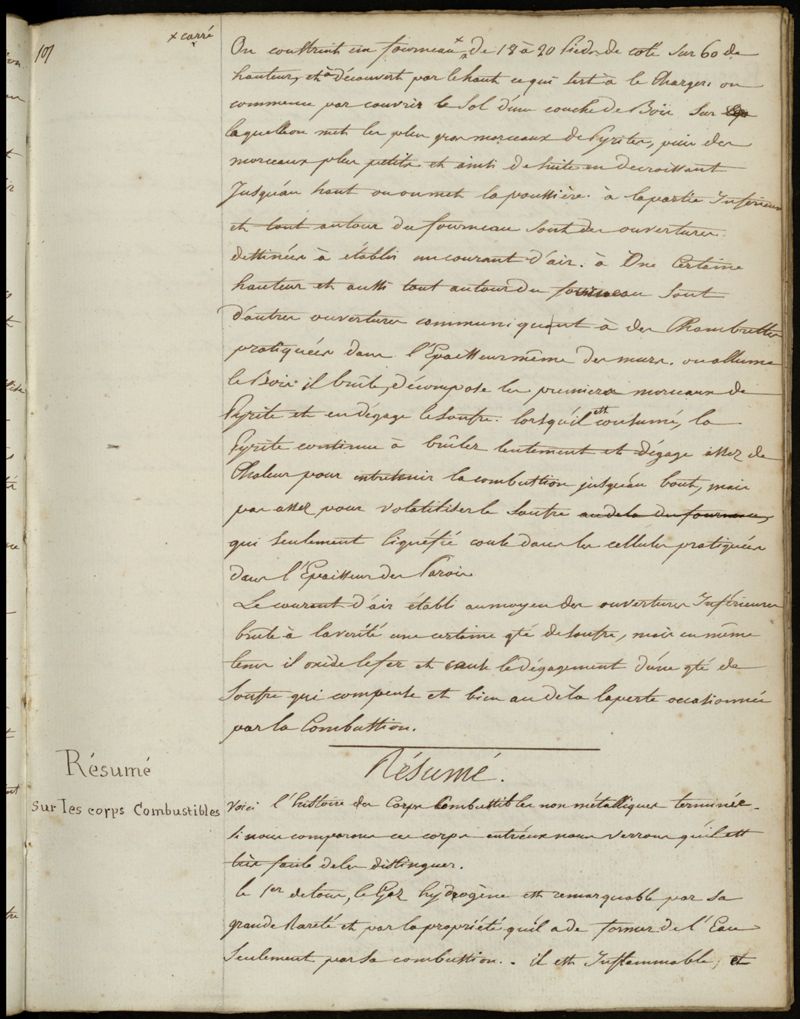 101
× carré
On construit un fourneau × de 18 à 20 pieds de coté sur 60 de
hauteur, et à découvert par le haut ce qui sert à le Charger. on
commence par couvrir le sol d'une couche de Bois sur
laquelle on met les plus gros morceaux de Pyrites, puis des
morceaux plus petits et ainsi de suite en decroissant
Jusqu'au haut ou on met la poussière. à la partie Inférieure
et tout autour du fourneau sont des ouvertures
destinées à établir un courant d'air. à Une Certaine
hauteur et aussi tout autour du fourneau sont
d'autres ouvertures communiquant à des Chambrettes
pratiquées dans l'Epaisseur même des murs. on allume
le Bois il brûle, décompose les premiers morceaux de
Pyrite et en dégage le soufre. lorsqu'il est consumé, la
Pyrite continue à brûler lentement et dégage assez de
Chaleur pour entretenir la combustion jusqu'au bout, mais
pas assez pour volatiliser le soufre au dela du fourneau,
qui seulement liquéfié coule dans les cellules pratiquées
dans l'Epaisseur des Parois
Le courant d'air établi au moyen des ouvertures Inférieures
brûle à la vérité une certaine qté de soufre, mais en même
tems il oxide le fer et cause le dégagement d'une qté de
soufre qui compense et bien au dela la perte occasionnée
par la Combustion.
Résumé
sur les corps Combustibles
Résumé.
Voici l'histoire des Corps Combustibles non métalliques terminée.
si nous comparons ces corps entr'eux nous verrons qu'il est
très facile de les distinguer.
le 1er de tous, le Gaz hydrogène est remarquable par sa
grande Rareté et par la propriété qu'il a de former de l'Eau
seulement par sa combustion. . il est Inflammable, et